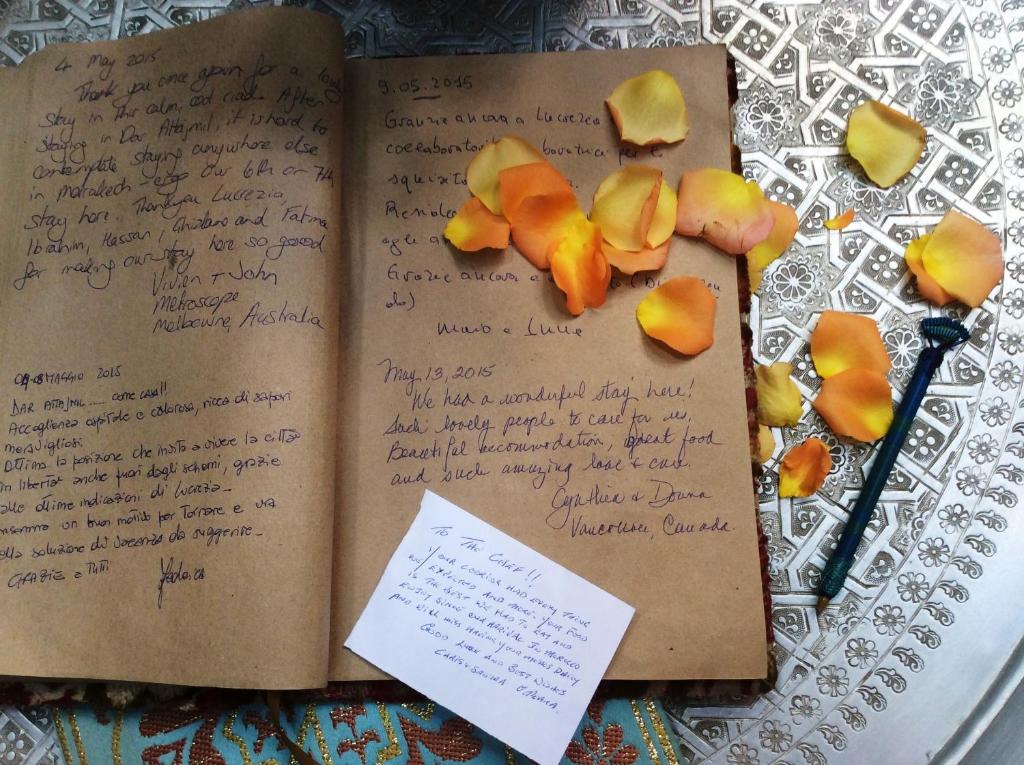 4 May 2015
Thank you once again for a lovely
stay in this calm, cool riad. After
staying in Dar Attajmil, it is hard to
contemplate staying anywhere else
in Marrakech - ergo our 6th or 7th
stay here. Thankyou Lucrezia,
Ibrahim, Hassan, Ghizlane and Fatima
for making our stay here so good
Vivien + John
Metroscope
Melbourne, Australia
MAGGIO 2015
DAR ATTAJMIL ..... come casa!!
Accoglienza ospitale e calorosa, ricca di sapori
meravigliosi
Ottima la posizione che invita a vivere la città
in libertà anche fuori dagli schemi, grazie
alle ottime indicazioni di Lucrezia -
un buon motivo per tornare e una
bella soluzione di vacanza da suggerire -
GRAZIE a tutti
Federica
9.05.2015
Grazie ancora a Lucrezia
per le
Grazie ancora e
do)
May, 13, 2015
We had a wonderful stay here!
Such lovely people to care for us.
Beautiful accommodation, great food
and such amazing love & care.
Cynthia & Donna
Vancouver, Canada.
TO THE CHEF!!
YOUR COOKING HAD EVERY THING
WE EXPECTED AND MORE. YOUR FOOD
IS THE BEST WE HAD TO EAT AND
ENJOY SINCE OUR ARRIVAL IN MOROCCO
AND WILL MISS HAVING YOUR MEALS DAILY
GOOD LUCK AND BEST WISHES
CHRIS & SANDRA